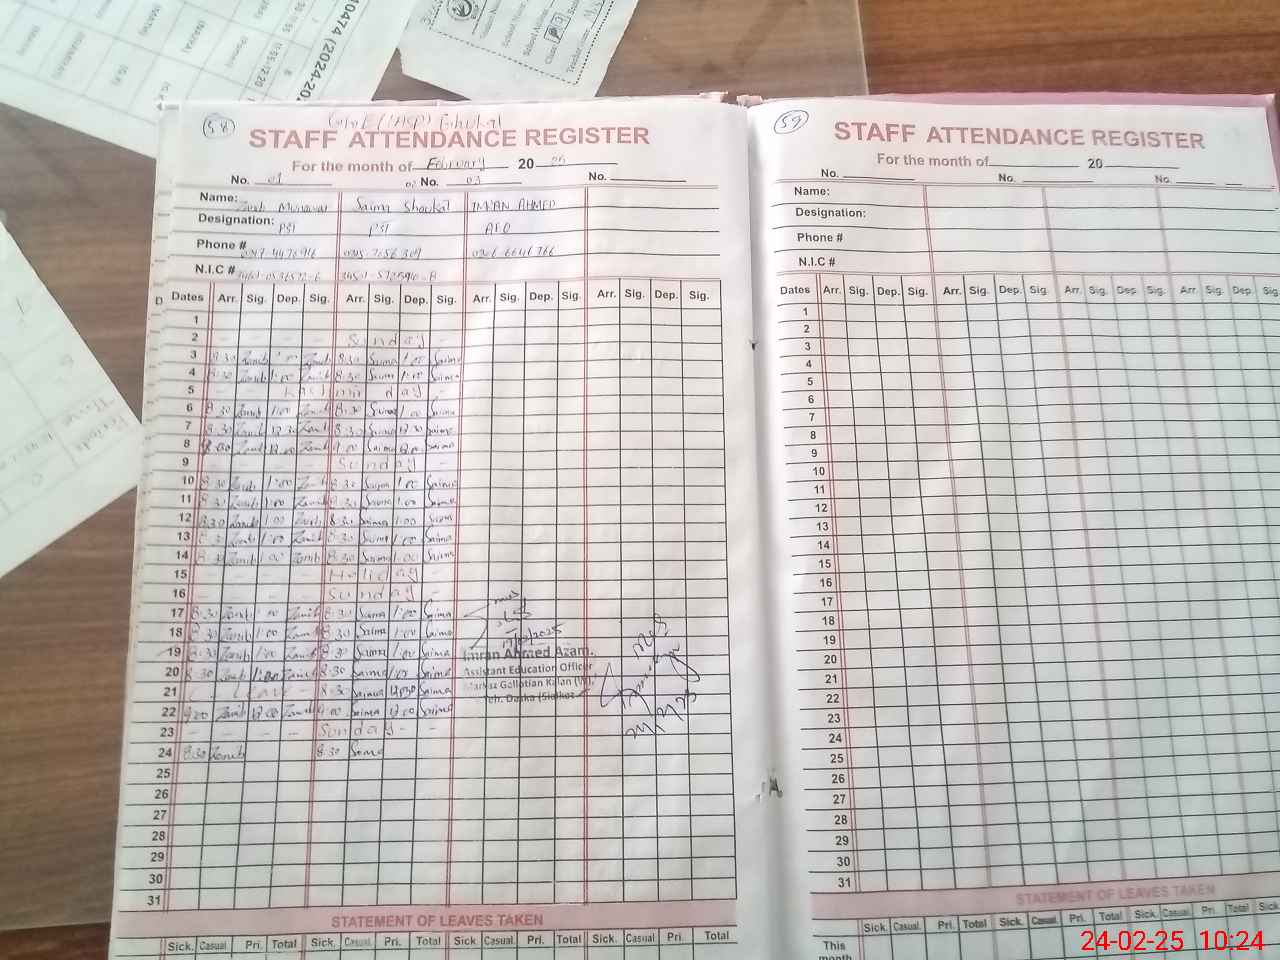 10474 (2024-202
58
STAFF ATTENDANCE REGISTER
For the month of February 20 25
No. 01 No. 03 No.
Name: Zanib Munawar Saima Shaukat IMRAN AHMED
Designation: PST PST AEO
Phone #
N.I.C #
Dates Arr. Sig. Dep. Sig. Arr. Sig. Dep. Sig. Arr. Sig. Dep. Sig. Arr. Sig. Dep. Sig.
1
2 Sunday
3 8:30 Zanib 1:00 Zanib 8:30 Saima 1:00 Saima
4 8:30 Zanib 1:00 Zanib 8:30 Saima 1:00 Saima
5 Kashmir day
6 8:30 Zanib 1:00 Zanib 8:30 Saima 1:00 Saima
7 8:30 Zanib 12:30 Zanib 8:30 Saima 12:30 Saima
8 Zanib 12:00 Zanib 9:00 Saima 12:00 Saima
9 Sunday
10 8:30 Zanib 1:00 Zanib 8:30 Saima 1:00 Saima
11 8:30 Zanib 1:00 Zanib 8:30 Saima 1:00 Saima
12 8:30 Zanib 1:00 Zanib 8:30 Saima 1:00 Saima
13 8:30 Zanib 1:00 Zanib 8:30 Saima 1:00 Saima
14 8:30 Zanib 1:00 Zanib 8:30 Saima 1:00 Saima
15 Holiday
16 Sunday
17 8:30 Zanib 1:00 Zanib 8:30 Saima 1:00 Saima
18 8:30 Zanib 1:00 Zanib 8:30 Saima 1:00 Saima
19 8:30 Zanib 1:00 Zanib 8:30 Saima 1:00 Saima
20 8:30 Zanib 1:00 Zanib 8:30 Saima 1:00 Saima
21 Leave 8:30 Saima 12:30 Saima
22 9:00 Zanib 12:00 Zanib 9:00 Saima 12:00 Saima
23 Sunday
24 8:30 Zanib 8:30 Saima
25
26
27
28
29
30
31
Imran Ahmed Azam.
Assistant Education Officer
Markaz Gallotian Kalan (W).
Teh. Daska (Sialkot
STATEMENT OF LEAVES TAKEN
Sick. Casual Pri. Total Sick. Casual. Pri. Total Sick. Casual. Pri. Total Sick. Casual. Pri. Total
59
STAFF ATTENDANCE REGISTER
For the month of 20
No. No. No.
Name:
Designation:
Phone #
N.I.C #
Dates Arr. Sig. Dep. Sig. Arr. Sig. Dep. Sig. Arr. Sig. Dep. Sig. Arr. Sig.
1
2
3
4
5
6
7
8
9
10
11
12
13
14
15
16
17
18
19
20
21
22
23
24
25
26
27
28
29
30
31
STATEMENT OF LEAVES TAKEN
Sick. Casual. Pri. Total Sick. Casual. Pri. Total Sick. Casual. Pri. Total Sick.
This
month
24-02-25 10:24